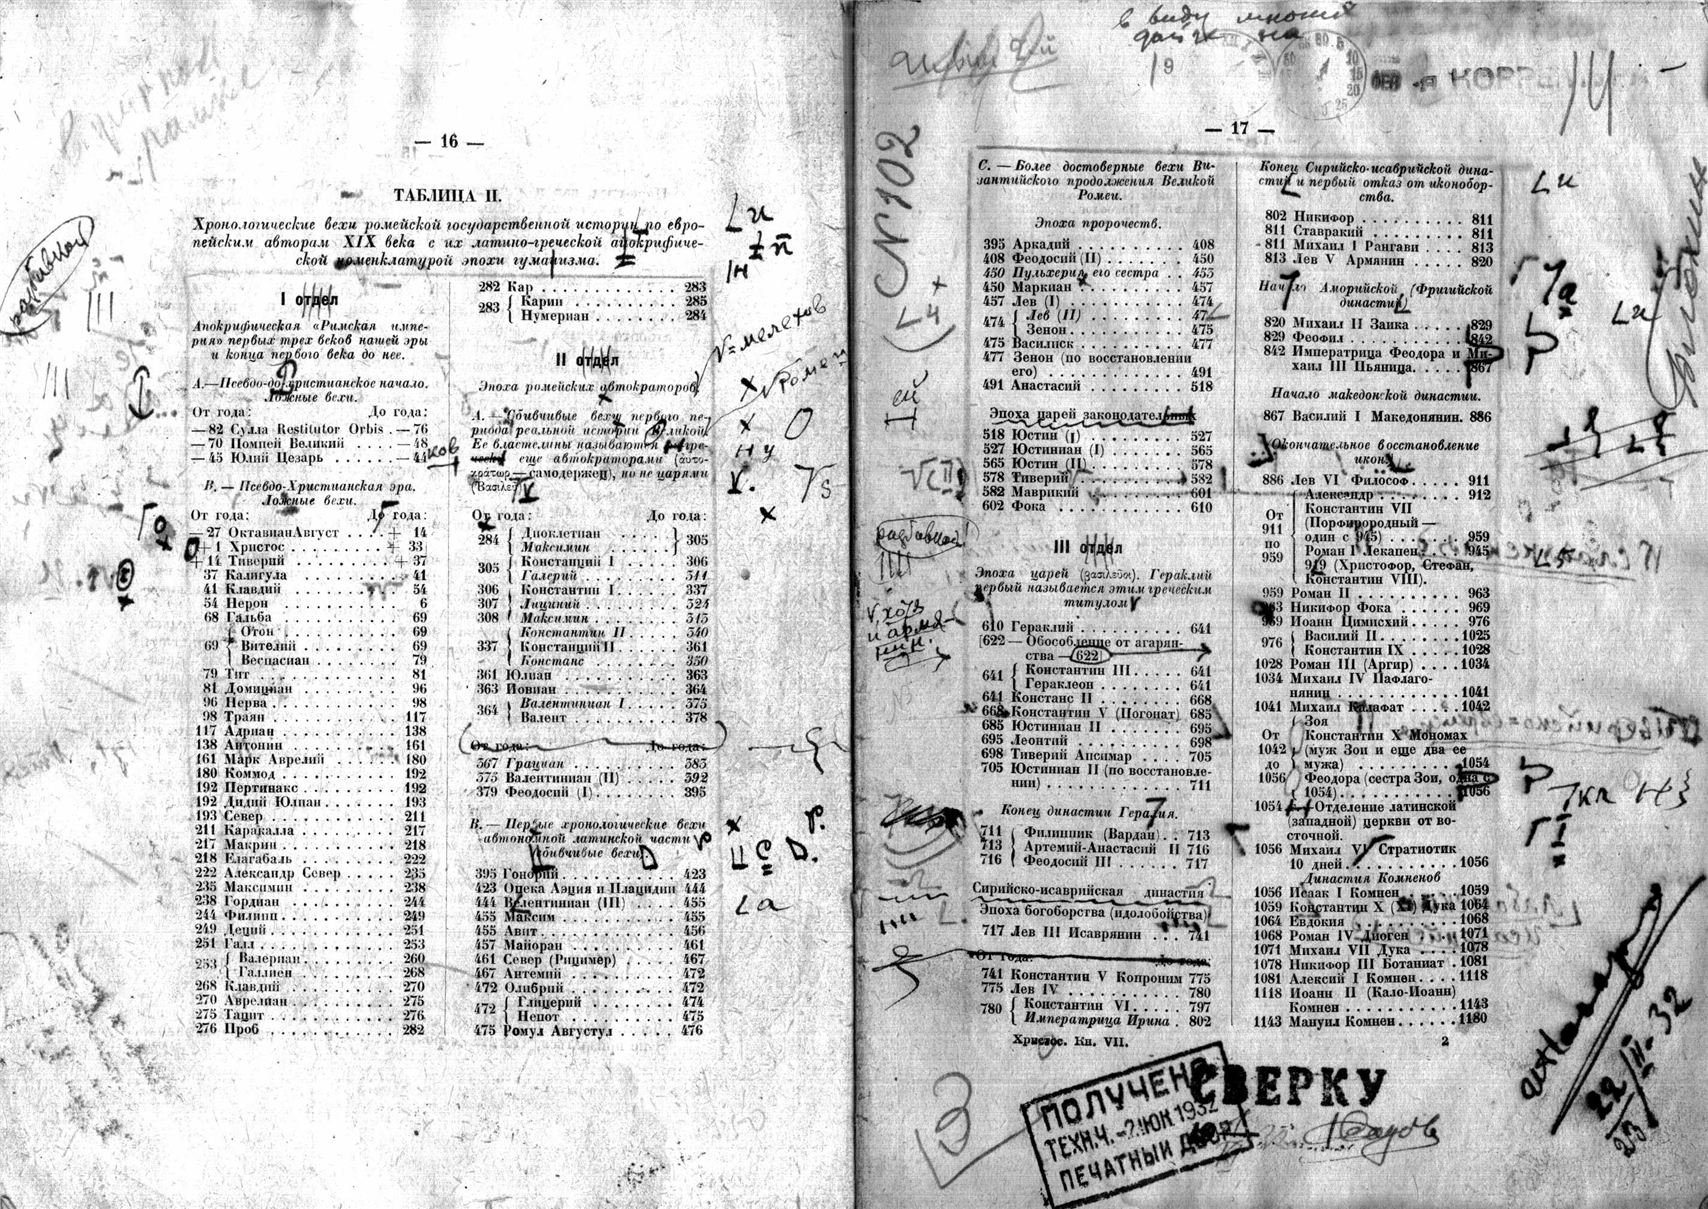 — 16 —
ТАБЛИЦА II.
Хронологические вехи ромейской государственной истории по евро-
пейским авторам XIX века с их латино-греческой апокрифиче-
ской номенклатурой эпохи гуманизма.
I отдел
Апокрифическая «Римская импе-
рия» первых трех веков нашей эры
и конца первого века до нее.
А.—Псевдо-до-христианское начало.
Ложные вехи.
От года: До года:
—82 Сулла Restitutor Orbis . —76
—70 Помпей Великий . . . . —48
—45 Юлий Цезарь . . . . . . —44
В. — Псевдо-Христианская эра.
Ложные вехи.
От года: До года:
—27 ОктавианАвгуст . . . . + 14
+ 1 Христос . . . . . . . . + 33
+14 Тиверий . . . . . . . . + 37
37 Калигула . . . . . . . . 41
41 Клавдий . . . . . . . . 54
54 Нерон . . . . . . . . . 6
68 Гальба . . . . . . . . 69
69 { Отон . . . . . . . . 69
Вителий . . . . . . . 69
Веспасиан . . . . . . 79
79 Тит . . . . . . . . . . 81
81 Домициан . . . . . . . 96
96 Нерва . . . . . . . . . 98
98 Траян . . . . . . . . . 117
117 Адриан . . . . . . . . . 138
138 Антонин . . . . . . . . 161
161 Марк Аврелий . . . . . . 180
180 Коммод . . . . . . . . . 192
192 Пертинакс . . . . . . . 192
192 Дидий Юлиан . . . . . . 193
193 Север . . . . . . . . . 211
211 Каракалла . . . . . . . 217
217 Макрин . . . . . . . . . 218
218 Елагабаль . . . . . . . 222
222 Александр Север . . . . 235
235 Максимин . . . . . . . . 238
238 Гордиан . . . . . . . . 244
244 Филипп . . . . . . . . . 249
249 Деций . . . . . . . . . 251
251 Галл . . . . . . . . . . 253
253 { Валериан . . . . . . . 260
Галлиен . . . . . . . 268
268 Клавдий . . . . . . . . 270
270 Аврелиан . . . . . . . . 275
275 Тацит . . . . . . . . . 276
276 Проб . . . . . . . . . . 282
282 Кар . . . . . . . . . . 283
283 { Карин . . . . . . . . 285
Нумериан . . . . . . . 284
II отдел
Эпоха ромейских автократоров
А. — Сбивчивые вехи первого пе-
риода реальной истории Великой
Ее властелины называются
еще автократорами (αὐτο-
κράτωρ — самодержец), но не царями
(Βασιλεύ)
От года: До года:
284 { Диоклетиан } 305
Максимин
305 { Констанций I . . . . 306
Галерий . . . . . . . 311
306 Константин I . . . . 337
307 Лициний . . . . . . . 324
308 Максимин . . . . . . 313
337 { Константин II . . . . 340
Констанций II . . . . 361
Констанс . . . . . . . 350
361 Юлиан . . . . . . . . . 363
363 Иовиан . . . . . . . . . 364
364 { Валентиниан I . . . . 375
Валент . . . . . . . . 378
От года: До года:
367 Грациан . . . . . . . . 383
375 Валентиниан (II) . . . . 392
379 Феодосий (I) . . . . . . 395
В. — Первые хронологические вехи
автономной латинской части
(сбивчивые вехи)
395 Гонорий . . . . . . . . 423
423 Опека Аэция и Плацидии 444
444 Валентиниан (III) . . . 455
455 Максим . . . . . . . . . 455
455 Авит . . . . . . . . . . 456
457 Майоран . . . . . . . . 461
461 Север (Рицимер) . . . . 467
467 Антемий . . . . . . . . 472
472 Олибрий . . . . . . . . 472
472 { Глицерий . . . . . . . 474
Непот . . . . . . . . 475
475 Ромул Августул . . . . . 476
— 17 —
С. — Более достоверные вехи Ви-
зантийского продолжения Великой
Ромеи.
Эпоха пророчеств.
395 Аркадий . . . . . . . . 408
408 Феодосий (II) . . . . . 450
450 Пульхерия его сестра . . 453
450 Маркиан . . . . . . . . 457
457 Лев (I) . . . . . . . . 474
474 { Лев (II) . . . . . . . 47
Зенон . . . . . . . . . 475
475 Василиск . . . . . . . . 477
477 Зенон (по восстановлении
его) . . . . . . . . . . 491
491 Анастасий . . . . . . . 518
Эпоха царей законодатель
518 Юстин (I) . . . . . . . 527
527 Юстиниан (I) . . . . . . 565
565 Юстин (II) . . . . . . . 578
578 Тиверий . . . . . . . . 582
582 Маврикий . . . . . . . . 601
602 Фока . . . . . . . . . . 610
III отдел
Эпоха царей (βασιλεύοι). Гераклий
первый называется этим греческим
титулом
610 Гераклий . . . . . . . . 641
[622 — Обособление от агарян-
ства — 622]
641 { Константин III . . . . 641
Гераклеон . . . . . . . 641
641 Констанс II . . . . . . 668
668 Константин V (Погонат) 685
685 Юстиниан II . . . . . . 695
695 Леонтий . . . . . . . . 698
698 Тиверий Апсимар . . . . 705
705 Юстиниан II (по восстановле-
нии) . . . . . . . . . . 711
Конец династии Гераклия.
711 { Филиппик (Вардан) . . 713
713 Артемий-Анастасий II 716
716 Феодосий III . . . . . 717
Сирийско-исаврийская династия
Эпоха богоборства (идолобойства)
717 Лев III Исаврянин . . . 741
От года: До года:
741 Константин V Копроним 775
775 Лев IV . . . . . . . . . 780
780 { Константин VI . . . . 797
Императрица Ирина . 802
Христос. Кн. VII.
Конец Сирийско-исаврийской дина-
стии и первый отказ от иконобор-
ства.
802 Никифор . . . . . . . . 811
811 Ставракий . . . . . . . 811
811 Михаил I Рангави . . . . 813
813 Лев V Армянин . . . . . 820
Начало Аморийской (Фригийской
династии)
820 Михаил II Заика . . . . 829
829 Феофил . . . . . . . . . 842
842 Императрица Феодора и Ми-
хаил III Пьяница . . . . 867
Начало македонской династии.
867 Василий I Македонянин. 886
Окончательное восстановление
икон
886 Лев VI Философ . . . . . 911
От 911 по 959 { Александр . . . . . . 912
Константин VII
(Порфирородный —
один с 945) . . . . . . 959
Роман I Лекапен . . . 945
919 (Христофор, Стефан,
Константин VIII).
959 Роман II . . . . . . . . 963
963 Никифор Фока . . . . . . 969
969 Иоанн Цимисхий . . . . . 976
976 { Василий II . . . . . . 1025
Константин IX . . . . . 1028
1028 Роман III (Аргир) . . . 1034
1034 Михаил IV Пафлаго-
нянин . . . . . . . . . 1041
1041 Михаил Калафат . . . . 1042
От 1042 до 1056 { Зоя
Константин X Мономах
(муж Зои и еще два ее
мужа) . . . . . . . . . 1054
Феодора (сестра Зои, одна с
1054) . . . . . . . . . 1056
1054 Отделение латинской
(западной) церкви от во-
сточной.
1056 Михаил VI Стратиотик
10 дней . . . . . . . . 1056
Династия Комненов
1056 Исаак I Комнен . . . . 1059
1059 Константин X (XI) Дука 1064
1064 Евдокия . . . . . . . . 1068
1068 Роман IV Диоген . . . . 1071
1071 Михаил VII Дука . . . . 1078
1078 Никифор III Ботаниат . 1081
1081 Алексий I Комнен . . . 1118
1118 Иоанн II (Кало-Иоанн)
Комнен . . . . . . . . . 1143
1143 Мануил Комнен . . . . . 1180
2
СВЕРКУ
ПОЛУЧЕНО
ТЕХН.Ч. -2.ИЮН 1932
ПЕЧАТНЫЙ ДВОР
N 102
в виду